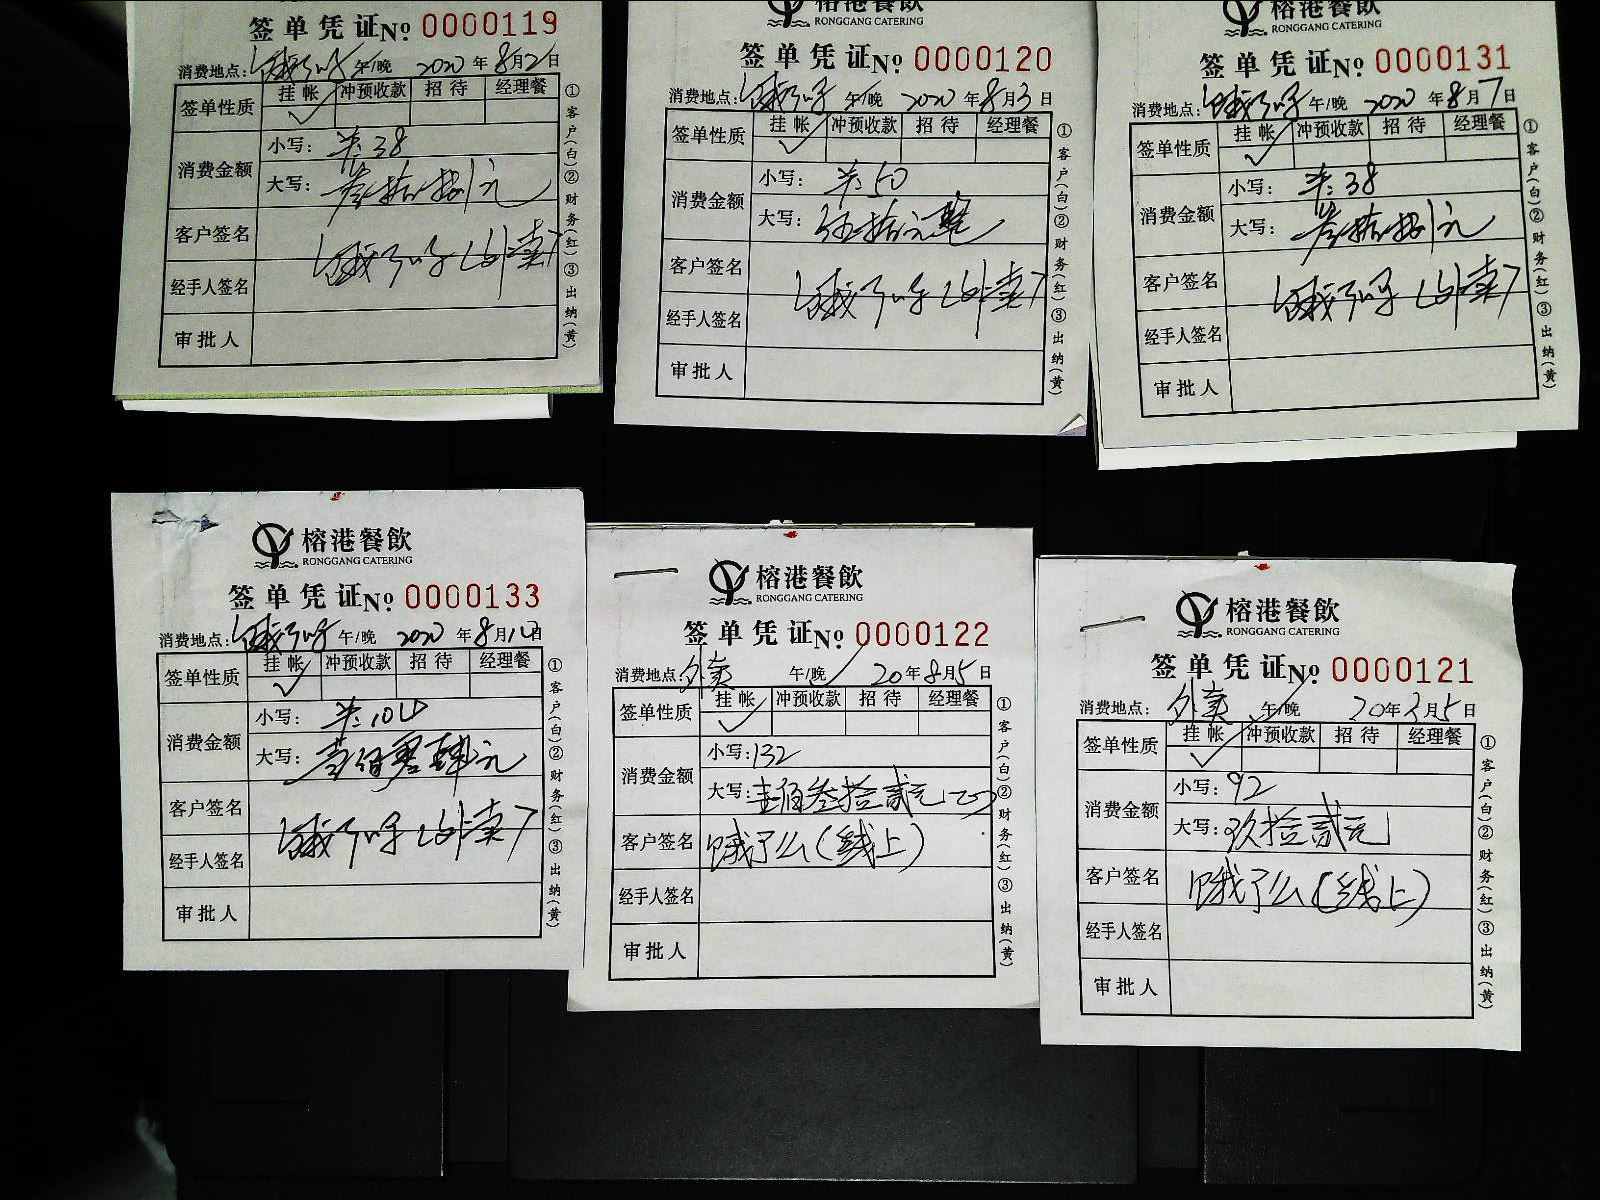 签单凭证 № 0000119
消费地点: 饿了吗 午/晚 2020 年 8月2日
签单性质 挂帐 冲预收款 招待 经理餐
✓
消费金额 小写: 38
大写: 叁拾捌元
客户签名 饿了吗(外卖)
经手人签名
审批人
①客户(白)②财务(红)③出纳(黄)
榕港餐飲
RONGGANG CATERING
签单凭证 № 0000120
消费地点: 饿了吗 午/晚 2020 年 8月3日
签单性质 挂帐 冲预收款 招待 经理餐
✓
消费金额 小写: 50
大写: 伍拾元整
客户签名 饿了吗(外卖)
经手人签名
审批人
①客户(白)②财务(红)③出纳(黄)
榕港餐飲
RONGGANG CATERING
签单凭证 № 0000131
消费地点: 饿了吗 午/晚 2020 年 8月7日
签单性质 挂帐 冲预收款 招待 经理餐
✓
消费金额 小写: 38
大写: 叁拾捌元
客户签名 饿了吗(外卖)
经手人签名
审批人
①客户(白)②财务(红)③出纳(黄)
榕港餐飲
RONGGANG CATERING
签单凭证 № 0000133
消费地点: 饿了吗 午/晚 2020 年 8月 日
签单性质 挂帐 冲预收款 招待 经理餐
✓
消费金额 小写: 104
大写: 壹佰零肆元
客户签名 饿了吗(外卖)
经手人签名
审批人
①客户(白)②财务(红)③出纳(黄)
榕港餐飲
RONGGANG CATERING
签单凭证 № 0000122
消费地点: 外卖 午/晚 20年8月5日
签单性质 挂帐 冲预收款 招待 经理餐
✓
消费金额 小写: 132
大写: 壹佰叁拾贰元
客户签名 饿了么(线上)
经手人签名
审批人
①客户(白)②财务(红)③出纳(黄)
榕港餐飲
RONGGANG CATERING
签单凭证 № 0000121
消费地点: 外卖 午/晚 20年8月5日
签单性质 挂帐 冲预收款 招待 经理餐
✓
消费金额 小写: 92
大写: 玖拾贰元
客户签名 饿了么(线上)
经手人签名
审批人
①客户(白)②财务(红)③出纳(黄)